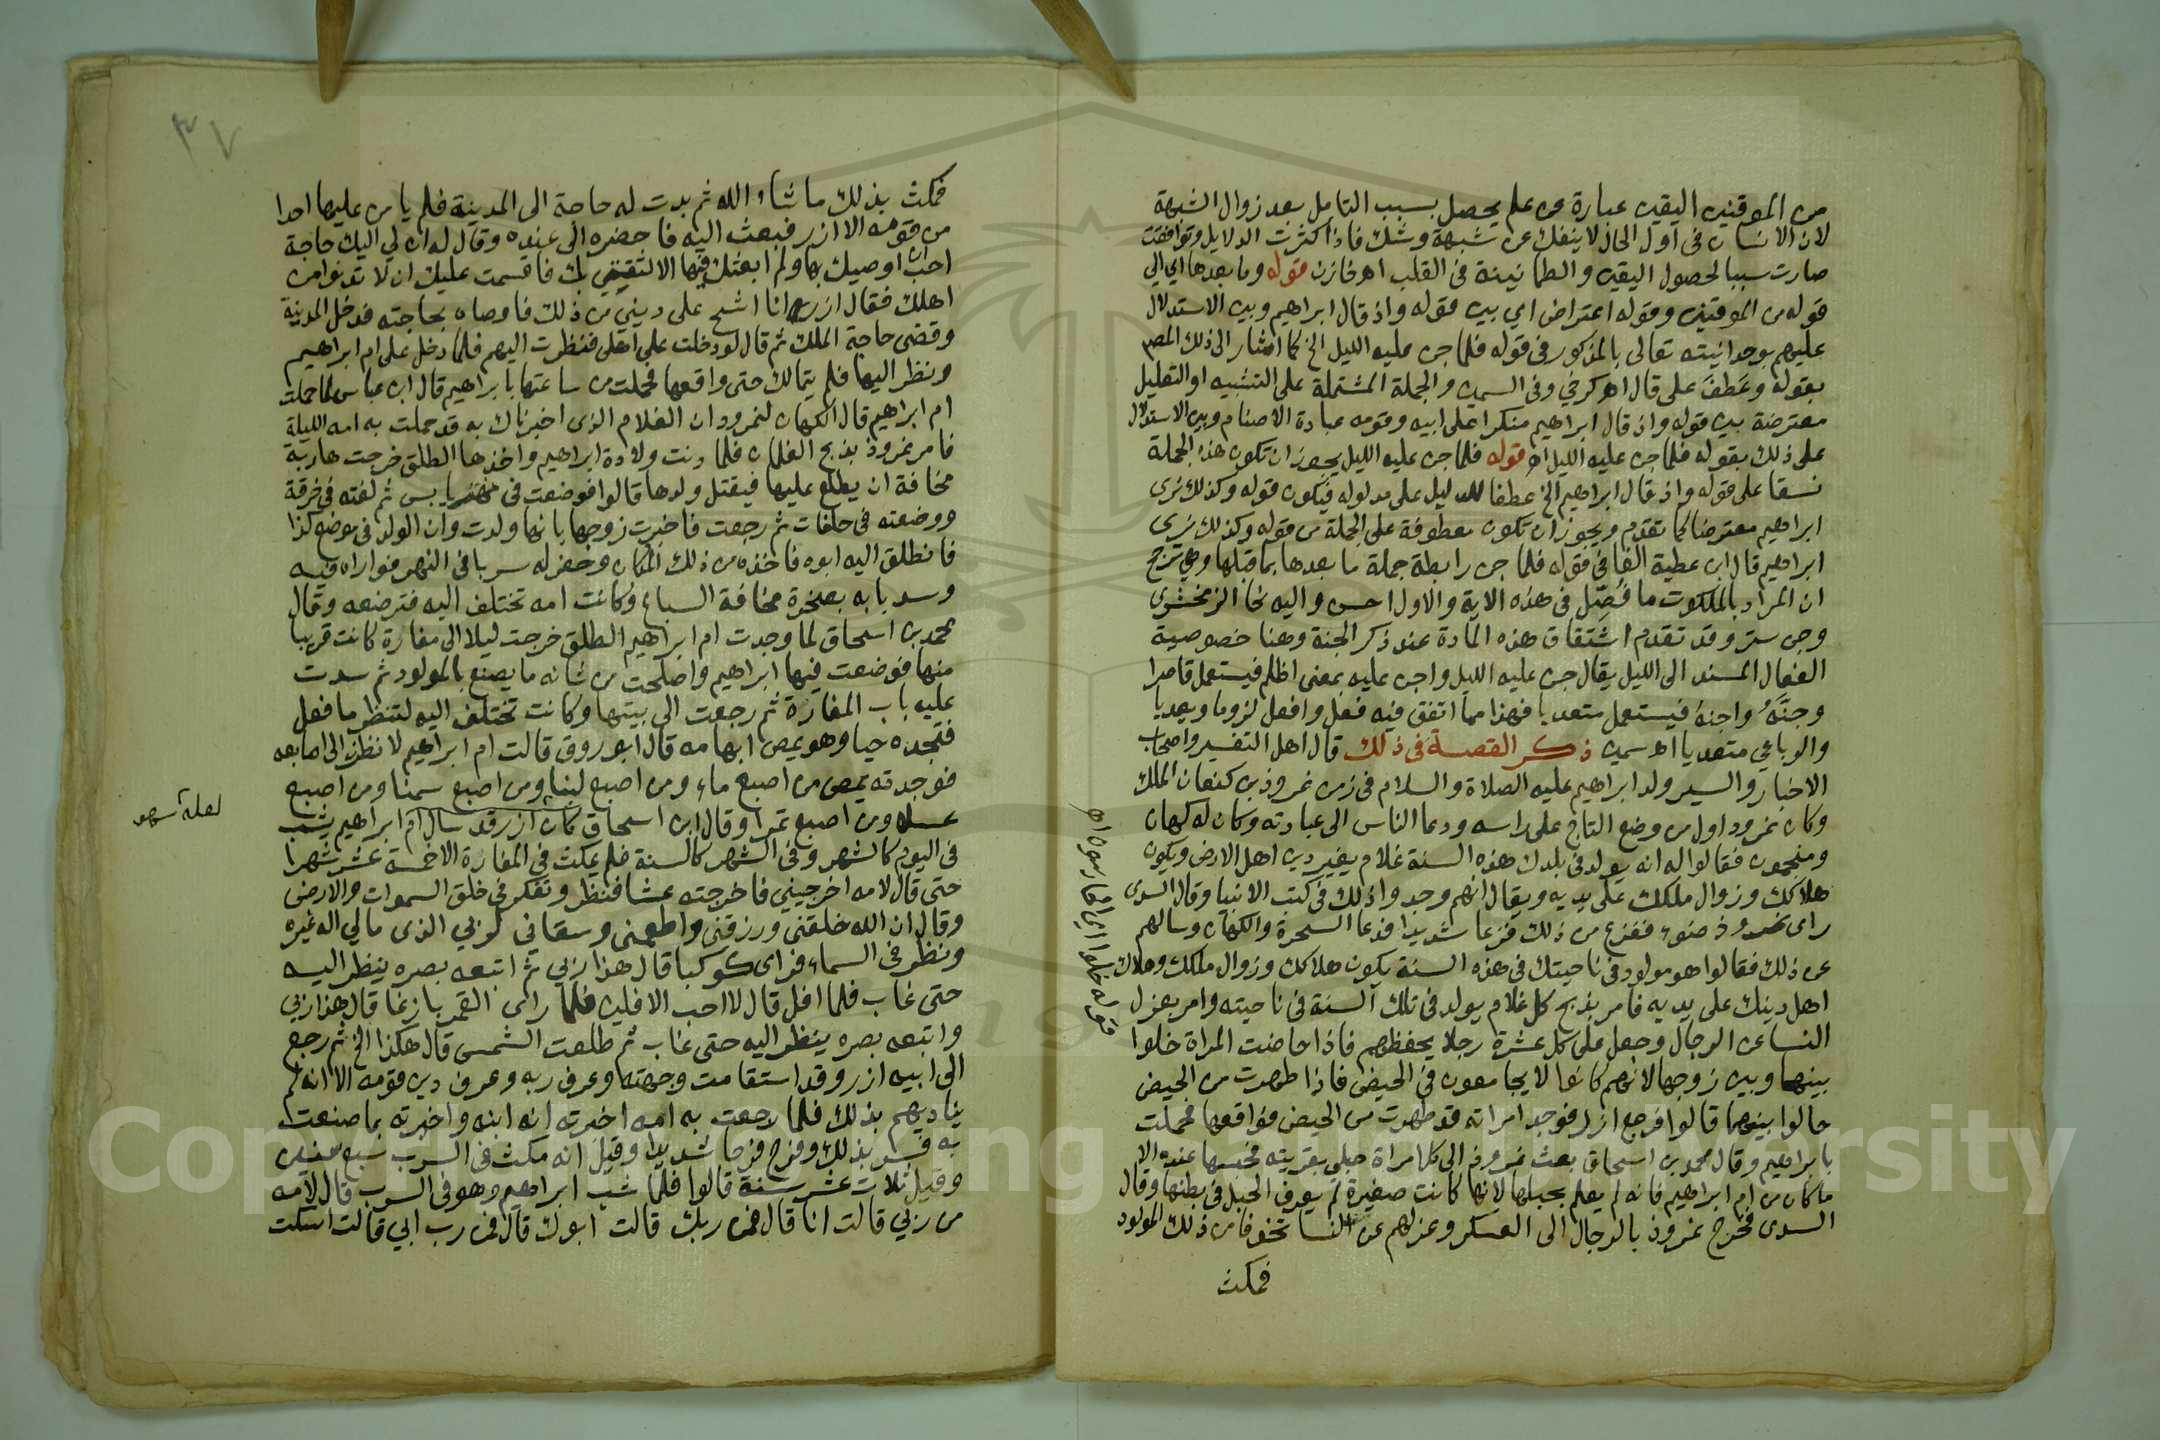 من الموقنين اليقين عبارة عن علم يحصل بسبب التامل بعد زوال الشبهة
لان الانسان فى اول الحال لا ينفك عن شبهة وشك فاذا كثرت الدلايل وتوافقت
صارت سببا لحصول اليقين والطمانينة فى القلب اه خازن قوله وما بعدها اي الي
قوله من الموقنين وقوله اعتراض اي بين قوله واذ قال ابراهيم وبين الاستدلال
عليهم بوحدانيته تعالى بالمذكور فى قوله فلما جن عليه الليل الخ كما اشار الى ذلك المصم
بقوله وعَطف على قال اه كرخي وفى السمين والجملة المشتملة على التشبيه او التعليل
معترضة بين قوله واذ قال ابراهيم منكرا على ابيه وقومه عبادة الاصنام وبين الاستدلال
على ذلك بقوله فلما جن عليه الليل اه قوله فلما جن عليه الليل يجوز ان تكون هذه الجملة
نسقا على قوله واذ قال ابراهيم الخ عطفا للدليل على مدلوله فيكون قوله وكذلك نرى
ابراهيم معترضا كما تقدم ويجوز ان تكون معطوفة على الجملة من قوله وكذلك نرى
ابراهيم قال ابن عطية الفا فى قوله فلما جن رابطة جملة ما بعدها بما قبلها وهي ترجح
ان المراد بالملكوت ما فُصِّل فى هذه الاية والاول احسن واليه نحا الزمخشرى
وجن ستر وقد تقدم اشتقاق هذه المادة عند ذكر الجنة وهنا خصوصية
الفعل المسند الى الليل يقال جن عليه الليل واجن عليه بمعنى اظلم فيستعمل قاصرا
وجنَّه واجنه فيستعمل متعديا فهذا مما اتفق فيه فعل وافعل لزوما وتعديا
والرباعي متعديا اه سمين ذكر القصة فى ذلك قال اهل التفسير واصحاب
الاخبار والسير ولد ابراهيم عليه الصلاة والسلام فى زمن نمروذ بن كنعان الملك
وكان نمرود اول من وضع التاج على راسه ودعا الناس الى عبادته وكان له كهان
ومنجمون فقالوا له انه يولد فى بلدك هذه السنة غلام يغير دين اهل الارض ويكون
هلاكك وزوال ملكك على يديه ويقال انهم وجدوا ذلك فى كتب الانبيا وقال السدى
راى نمروذ ضوء ففزع من ذلك فزعا شديدا فدعا السحرة والكهان وسالهم
عن ذلك فقالوا هو مولود فى ناحيتك فى هذه السنة يكون هلاكك وزوال ملكك وهلاك
اهل دينك على يديه فامر بذبح كل غلام يولد فى تلك السنة فى ناحيته وامر بعزل
النسا عن الرجال وجعل على كل عشرة رجلا يحفظهم فاذا حاضت المراة خلوا
بينها وبين زوجها لانهم كانوا لا يجامعون فى الحيض فاذا طهرت من الحيض
حالوا بينهما قالوا فرجع ازر فوجد امراته قد طهرت من الحيض فواقعها فحملت
بابراهيم وقال محمد بن اسحاق بعث نمروذ الى كل امراة حبلى بقريته فحبسها عنده الا
ما كان من ام ابراهيم فانه لم يعلم بحبلها لانها كانت صغيرة لم يعرف الحبل فى بطنها وقال
السدى فخرج نمروذ بالرجال الى العسكر وعزلهم عن النسا تخوفا من ذلك المولود
فمكث
٣٧
فمكث بذلك ما شاء الله ثم بدت له حاجة الى المدينة فلم يامن عليها احدا
من قومه الا ازر فبعث اليه فاحضره الى عنده وقال له ان لي اليك حاجة
احب ان اوصيك بها ولم ابعثك فيها الا لثقتي بك فاقسمت عليك ان لا تدنوا من
اهلك فقال ازر انا اشح على ديني من ذلك فاوصاه بحاجته فدخل المدينة
وقضى حاجة الملك ثم قال لو دخلت على اهلى فنظرت اليهم فلما دخل على ام ابراهيم
ونظر اليها فلم يتمالك حتى واقعها فحملت من ساعتها بابراهيم قال ابن عباس لما حملت
ام ابراهيم قال الكهان لنمرود ان الغلام الذى اخبرناك به قد حملت به امه الليلة
فامر نمروذ بذبح الغلمان فلما دنت ولادة ابراهيم واخذها الطلق خرجت هاربة
مخافة ان يطلع عليها فيقتل ولدها قالوا فوضعت فى نهر يابس ثم لفته فى خرقة
ووضعته فى حلفات ثم رجعت فاخبرت زوجها بانها ولدت وان الولد فى موضع كذا
فانطلق اليه ابوه فاخذه من ذلك المكان وحفر له سربا فى النهر فواراه فيه
وسد بابه بصخرة مخافة السباع وكانت امه تختلف اليه فترضعه وقال
محمد بن اسحاق لما وجدت ام ابراهيم الطلق خرجت ليلا الى مغارة كانت قريبا
منها فوضعت فيها ابراهيم واصلحت من شانه ما يصنع بالمولود ثم سدت
عليه باب المغارة ثم رجعت الى بيتها وكانت تختلف اليه لتنظر ما فعل
فتجده حيا وهو يمص ابهامه قال ابو روق قالت ام ابراهيم لانظرن الى اصابعه
فوجدته يمص من اصبع ماء ومن اصبع لبنا ومن اصبع سمنا ومن اصبع
عسلا ومن اصبع تمرا وقال ابن اسحاق كان ازر قد سال ام ابراهيم يشب
فى اليوم كالشهر وفى الشهر كالسنة فلم يمكث فى المغارة الا خمسة عشر شهرا
حتى قال لامه اخرجيني فاخرجته عشا فنظر وتفكر فى خلق السموات والارض
وقال ان الله خلقنى ورزقنى واطعمنى وسقاني لربي الذى مالي اله غيره
ونظر فى السماء فراى كوكبا قال هذا ربي ثم اتبعه بصره ينظر اليه
حتى غاب فلما افل قال لا احب الافلين فلما راى القمر بازغا قال هذا ربي
واتبعه بصره ينظر اليه حتى غاب ثم طلعت الشمس قال هكذا الخ ثم رجع
الى ابيه ازر وقد استقامت وجهته وعرف ربه وعرف دين قومه الا انه لم
يناديهم بذلك فلما رجعت به امه اخبرته انه ابنه واخبرته بما صنعت
به فسر بذلك وفرح فرحا شديدا وقيل انه مكث فى السرب سبع سنين
وقيل ثلاث عشر سنة قالوا فلما شب ابراهيم وهو فى السرب قال لامه
من ربي قالت انا قال فمن ربك قالت ابوك قال فمن رب ابي قالت اسكت
لعله سهو